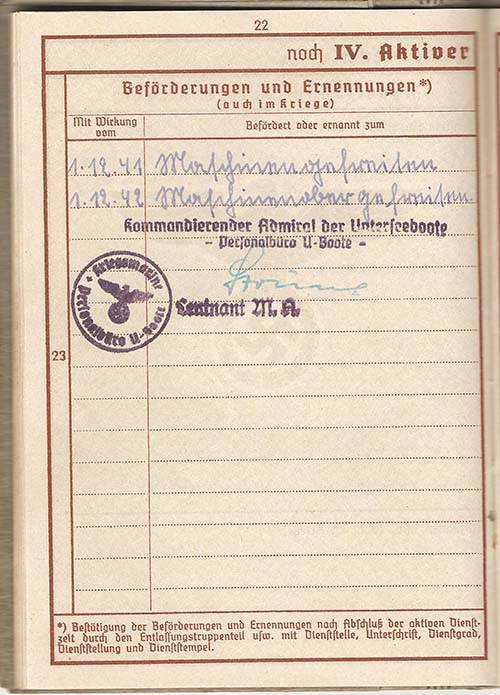 22
noch IV. Aktiver
Beförderungen und Ernennungen*)
(auch im Kriege)
Mit Wirkung vom
Befördert oder ernannt zum
1.12.41 Maschinengefreiten
1.12.42 Maschinenobergefreiten.
Kommandierender Admiral der Unterseeboote
- Personalbüro U-Boote -
Leutnant M. A.
Kriegsmarine
Personalbüro U-Boote
23
*) Bestätigung der Beförderungen und Ernennungen nach Abschluß der aktiven Dienst-
zeit durch den Entlassungstruppenteil usw. mit Dienststelle, Unterschrift, Dienstgrad,
Dienststellung und Dienststempel.